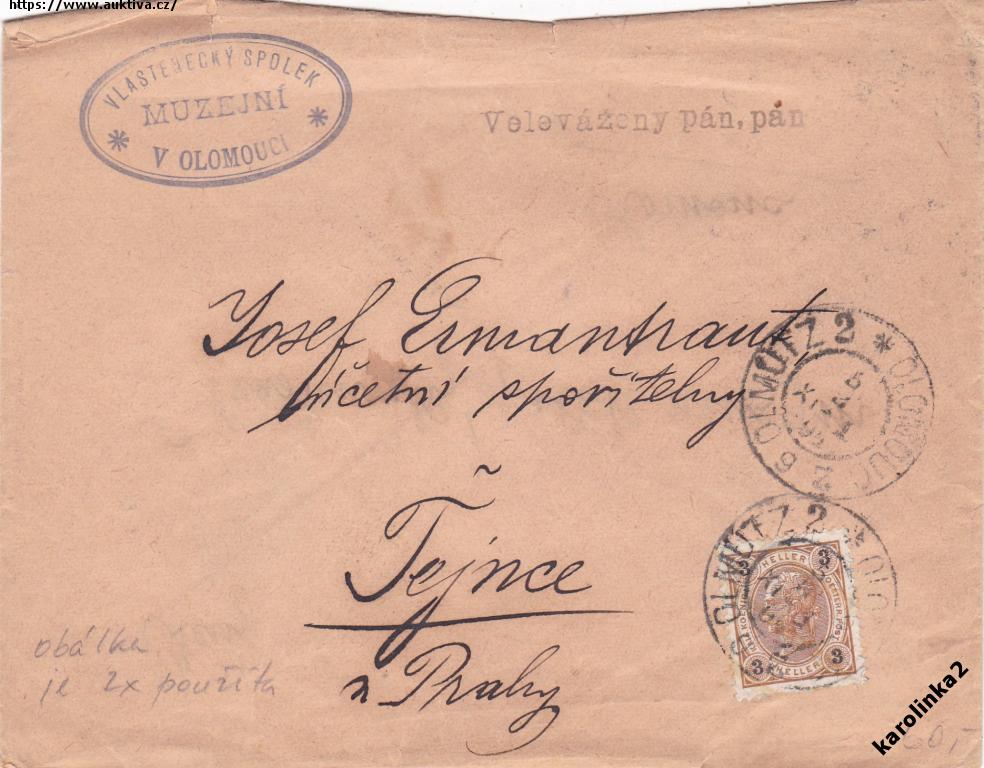 https://www.auktiva.cz/
VLASTENECKÝ SPOLEK
MUZEJNÍ
V OLOMOUCI
Velevážený pán, pán
Josef Ermantraut,
účetní spořitelny
Tejnce
z Prahy
OLMÜTZ 2 * OLOMOUC 2
OLMÜTZ 2 * OLO
3 3
HELLER
3 HELLER 3
obálka
je 2x použita
karolinka2